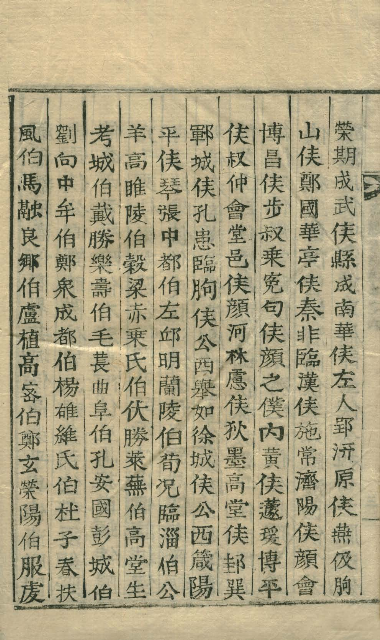 榮期成武侯縣成南華侯左人郢汧原侯燕伋朐
山侯鄭國華亭侯秦非臨漢侯施常濟陽侯顏會
博昌侯步叔乘宛句侯顏之僕內黃侯蘧瑗博平
侯叔仲會堂邑侯顏河林慮侯狄墨高堂侯邽巽
鄆城侯孔患臨朐侯公西輿如徐城侯公西箴陽
平侯琴張中都伯左邱明蘭陵伯荀况臨淄伯公
羊高睢陵伯穀梁赤乘氏伯伏勝萊蕪伯高堂生
考城伯戴勝樂壽伯毛萇曲阜伯孔安國彭城伯
劉向中牟伯鄭衆成都伯楊雄緱氏伯杜子春扶
風伯馬融良鄉伯盧植高密伯鄭玄滎陽伯服虔